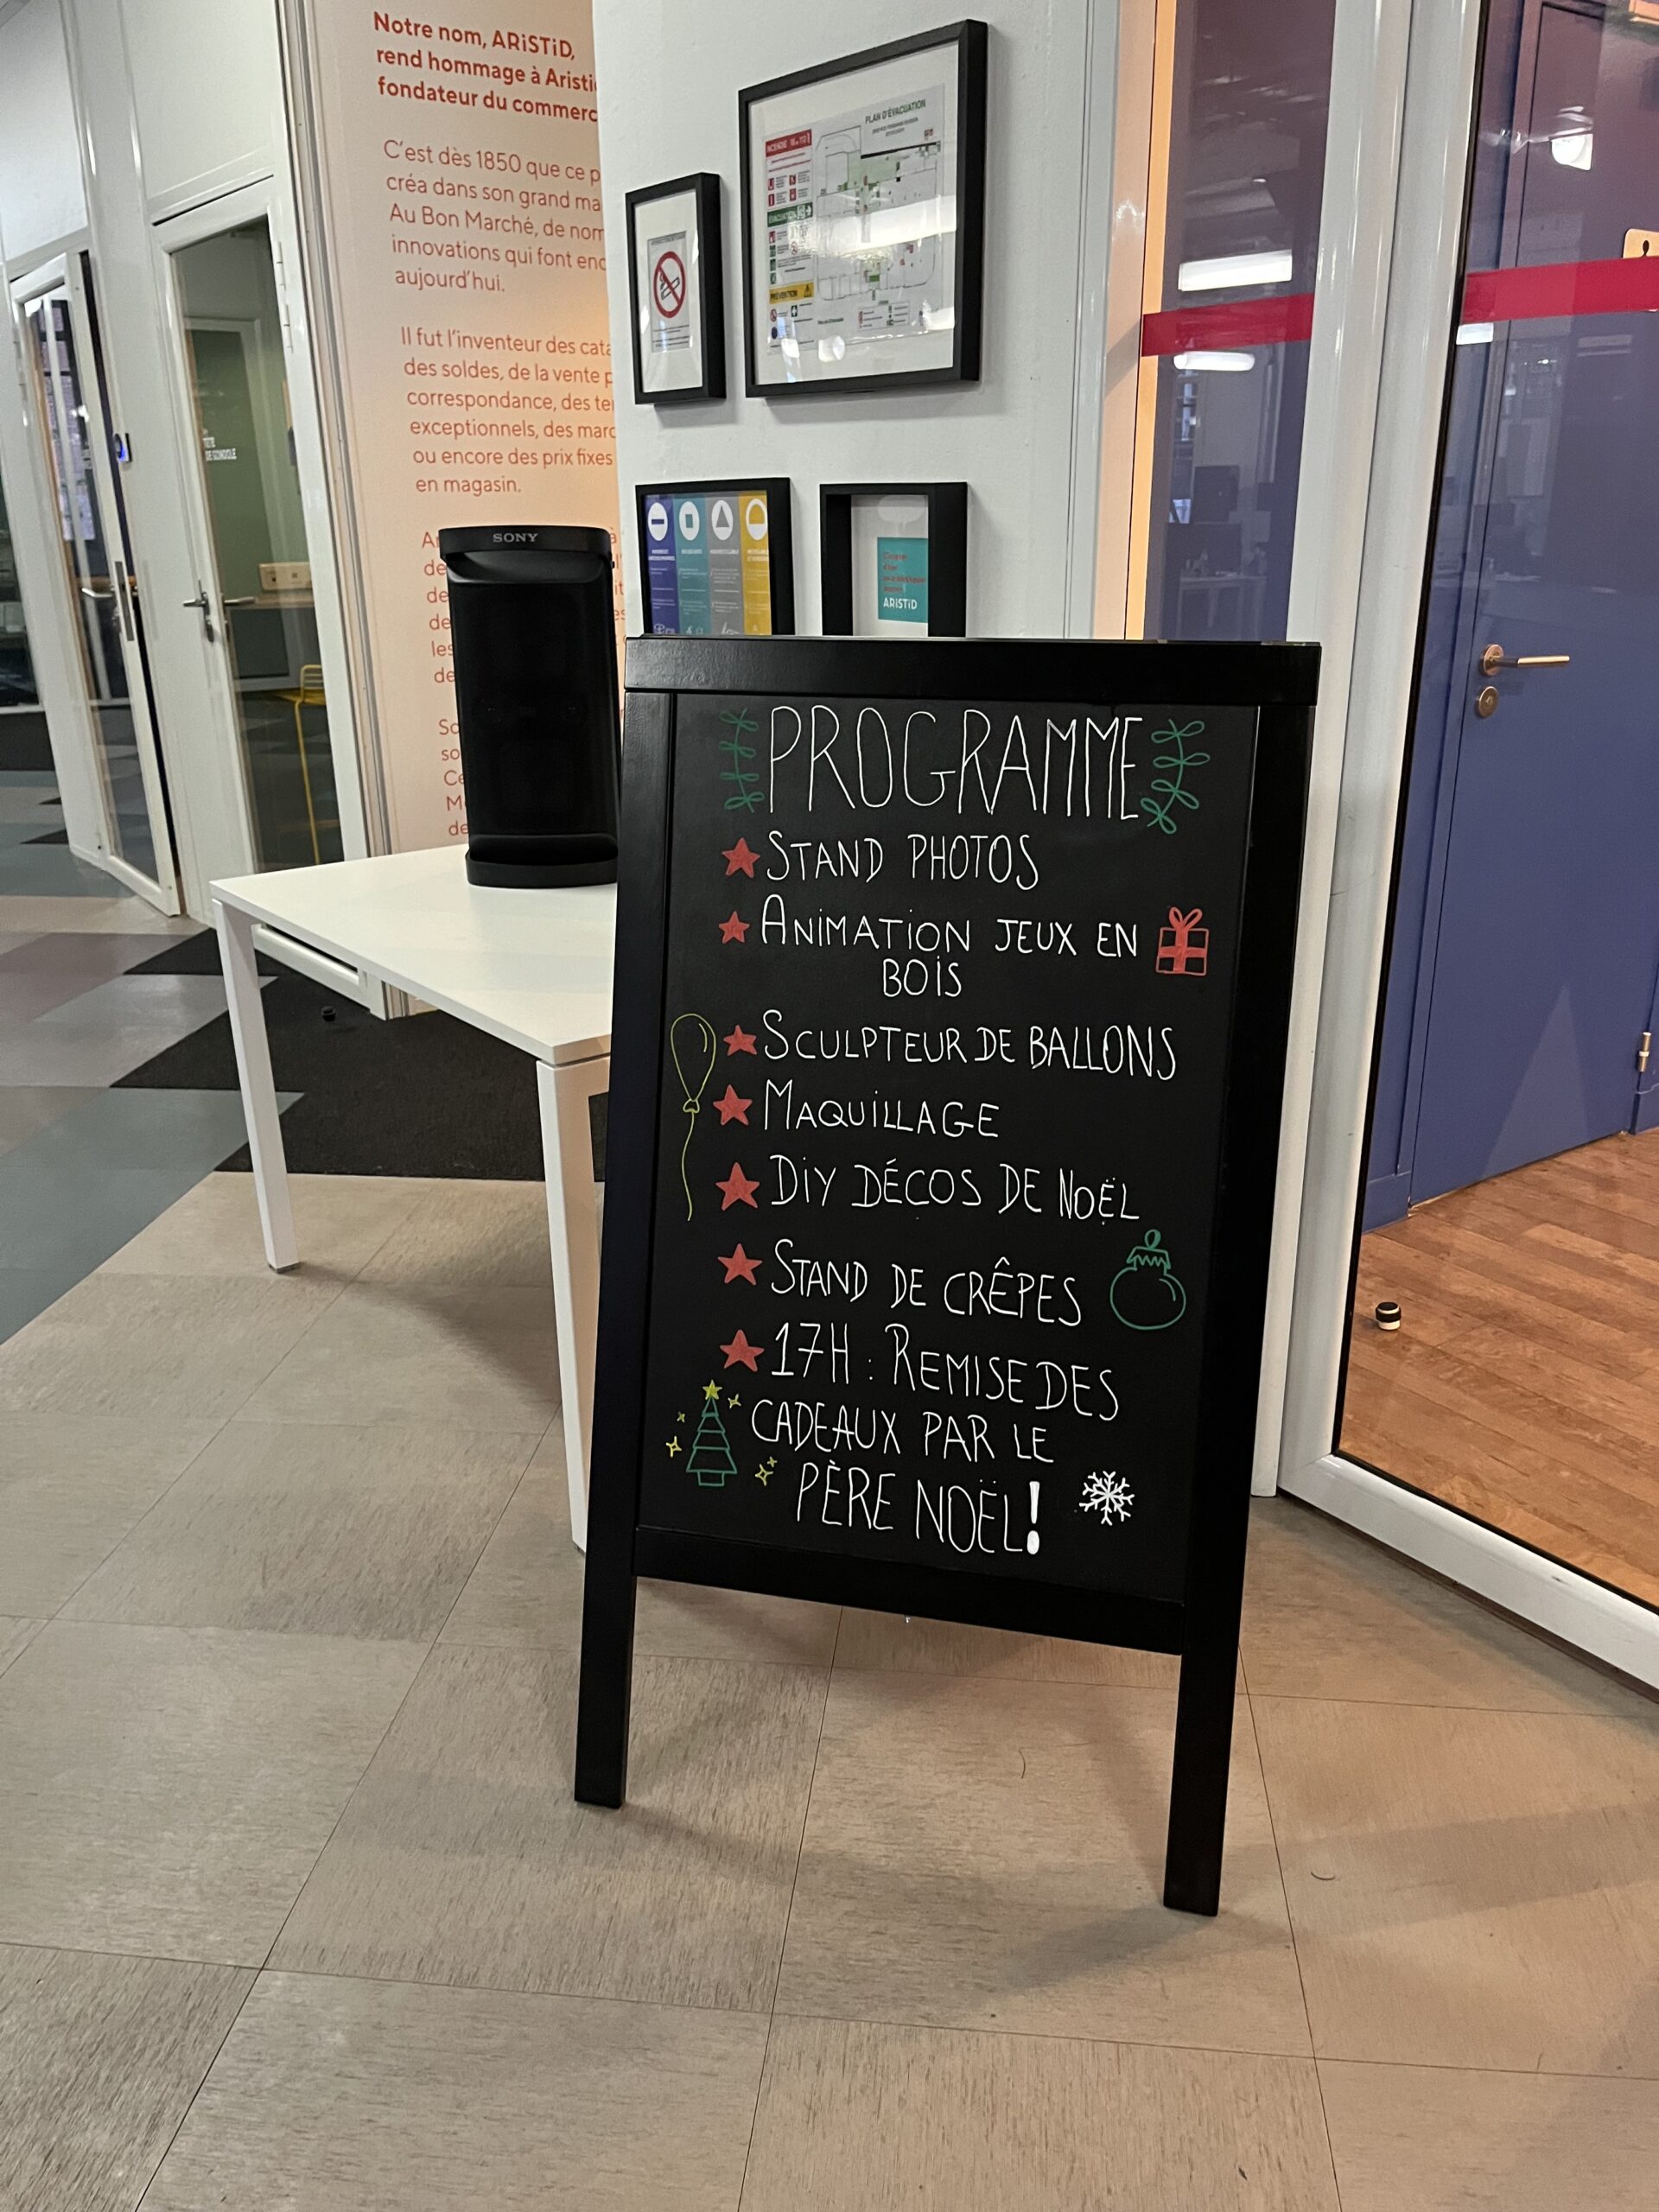 Notre nom, ARiSTiD,
rend hommage à
fondateur du
C'est dès 1850 que ce
créa dans son grand
Au Bon Marché, de
innovations qui font
aujourd'hui.
Il fut l'inventeur des
des soldes, de la vente
correspondance, des
exceptionnels, des
ou encore des prix fixes
en magasin.
PLAN D'ÉVACUATION
INCENDIE
ÉVACUATION
PRÉVENTION
SONY
ARiSTiD
PROGRAMME
STAND PHOTOS
ANiMATiON JEUX EN
BOiS
SCULPTEUR DE BALLONS
MAQUiLLAGE
DiY DÉCOS DE NOËL
STAND DE CRÊPES
17H : REMISE DES
CADEAUX PAR LE
PÈRE NOËL!